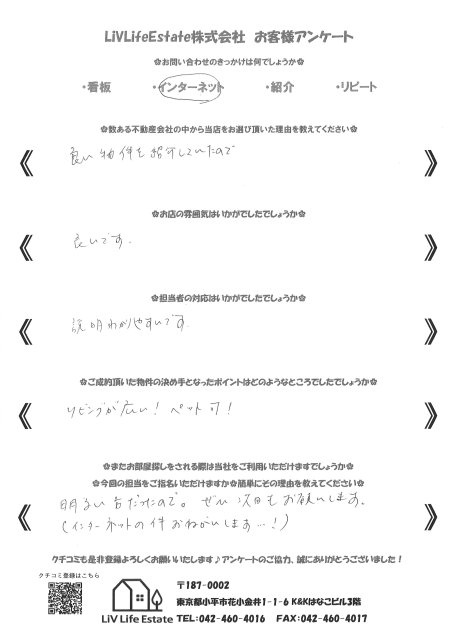 LiVLifeEstate株式会社 お客様アンケート
✿お問い合わせのきっかけは何でしょうか✿
・看板 ・インターネット ・紹介 ・リピート
✿数ある不動産会社の中から当店をお選び頂いた理由を教えてください✿
良い物件を紹介していたので
✿お店の雰囲気はいかがでしたでしょうか✿
良いです.
✿担当者の対応はいかがでしたでしょうか✿
説明わかりやすいです
✿ご成約頂いた物件の決め手となったポイントはどのようなところでしたでしょうか✿
リビングが広い! ペット可!
✿またお部屋探しをされる際は当社をご利用いただけますでしょうか✿
✿今回の担当をご指名いただけますか✿簡単にその理由を教えてください✿
明るい だったので。ぜひ次回もお願いします.
(インターネットの件おねがいします…!)
クチコミも是非登録よろしくお願いいたします♪アンケートのご協力、誠にありがとうございました!
クチコミ登録はこちら
LiV Life Estate
〒187-0002
東京都小平市花小金井1-1-6 K&Kはなこビル3階
TEL:042-460-4016 FAX:042-460-4017